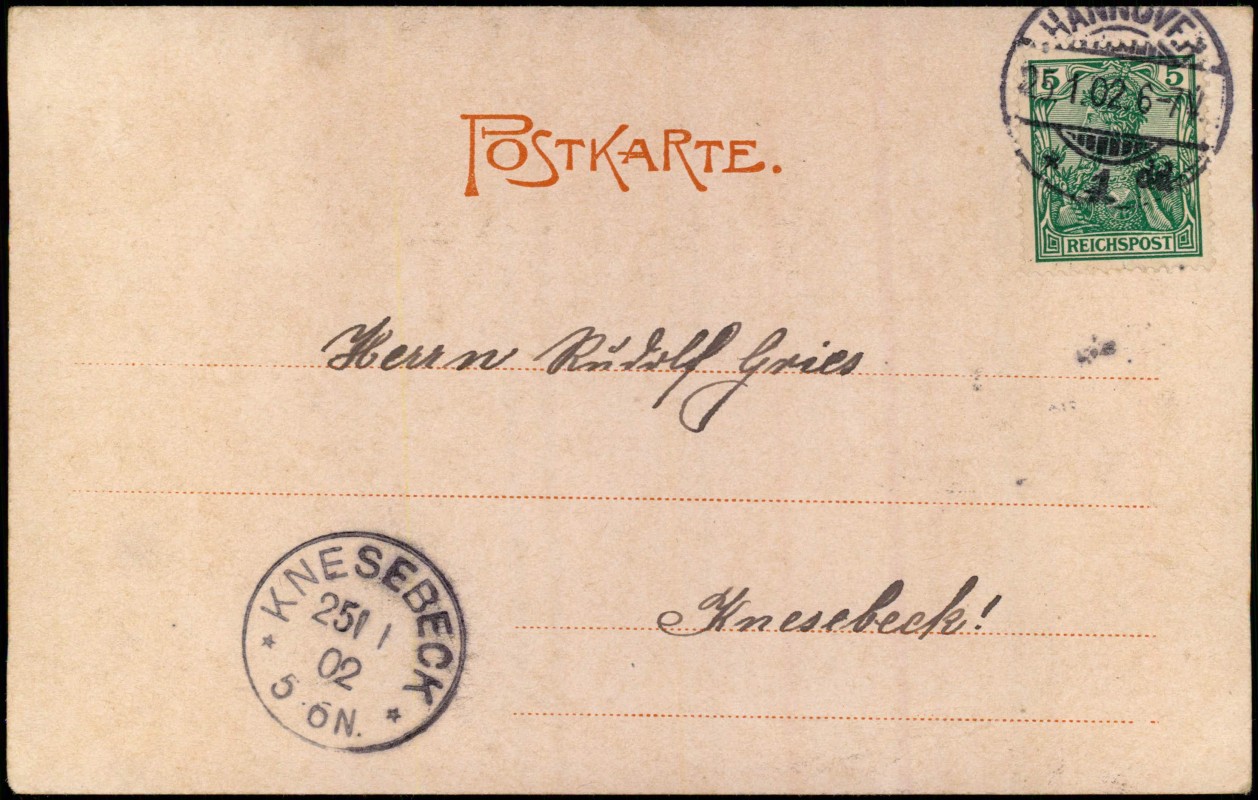 HANNOVER
25.1.02.6-7N.
* 1
5 5
REICHSPOST
POSTKARTE.
Herrn Rudolf Gries
Knesebeck!
KNESEBECK
25/1
02
5-6N.
* *